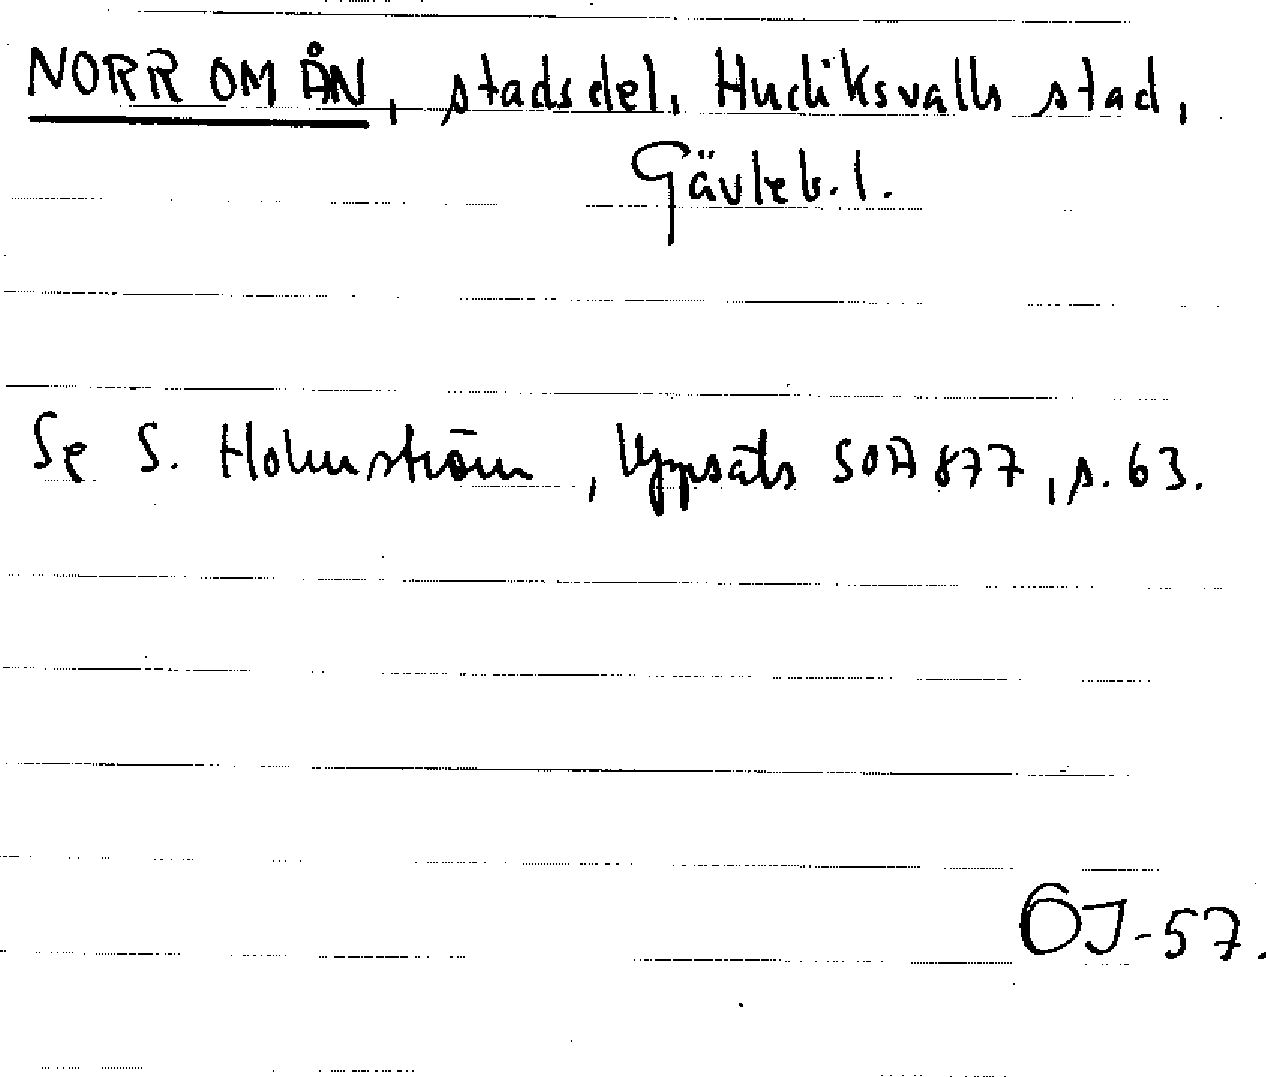 NORR OM ÅN, stadsdel, Hudiksvalls stad,
Gävleb. l.
Se S. Holmström, Uppsats SOA 877, s. 63.
ÖJ-57.